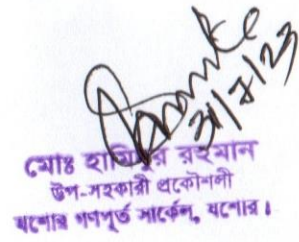 ৩১/৮/২৩
মোঃ হাফিজুর রহমান
উপ-সহকারী প্রকৌশলী
যশোর গণপূর্ত সার্কেল, যশোর।